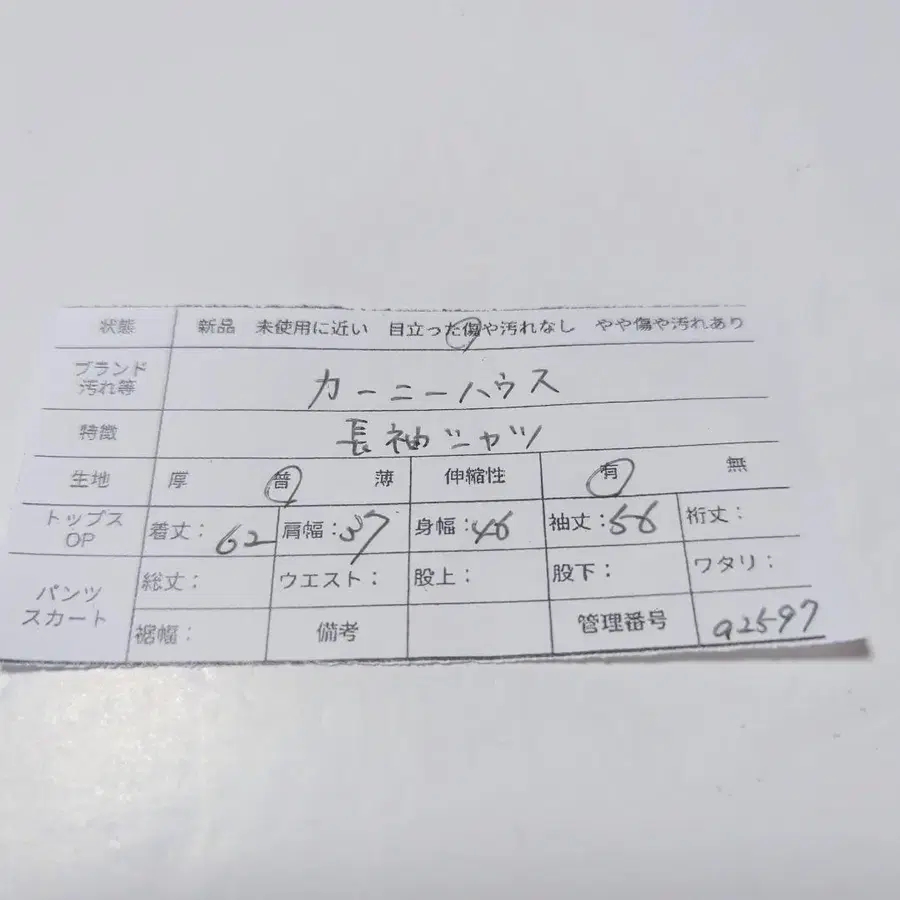 状態 新品 未使用に近い 目立った傷や汚れなし やや傷や汚れあり
ブランド
汚れ等 カーニーハウス
特徴 長袖シャツ
生地 厚 普 薄 伸縮性 有 無
トップス
OP 着丈：62 肩幅：37 身幅：46 袖丈：56 裄丈：
パンツ
スカート 総丈： ウエスト： 股上： 股下： ワタリ：
裾幅： 備考 管理番号 a2597